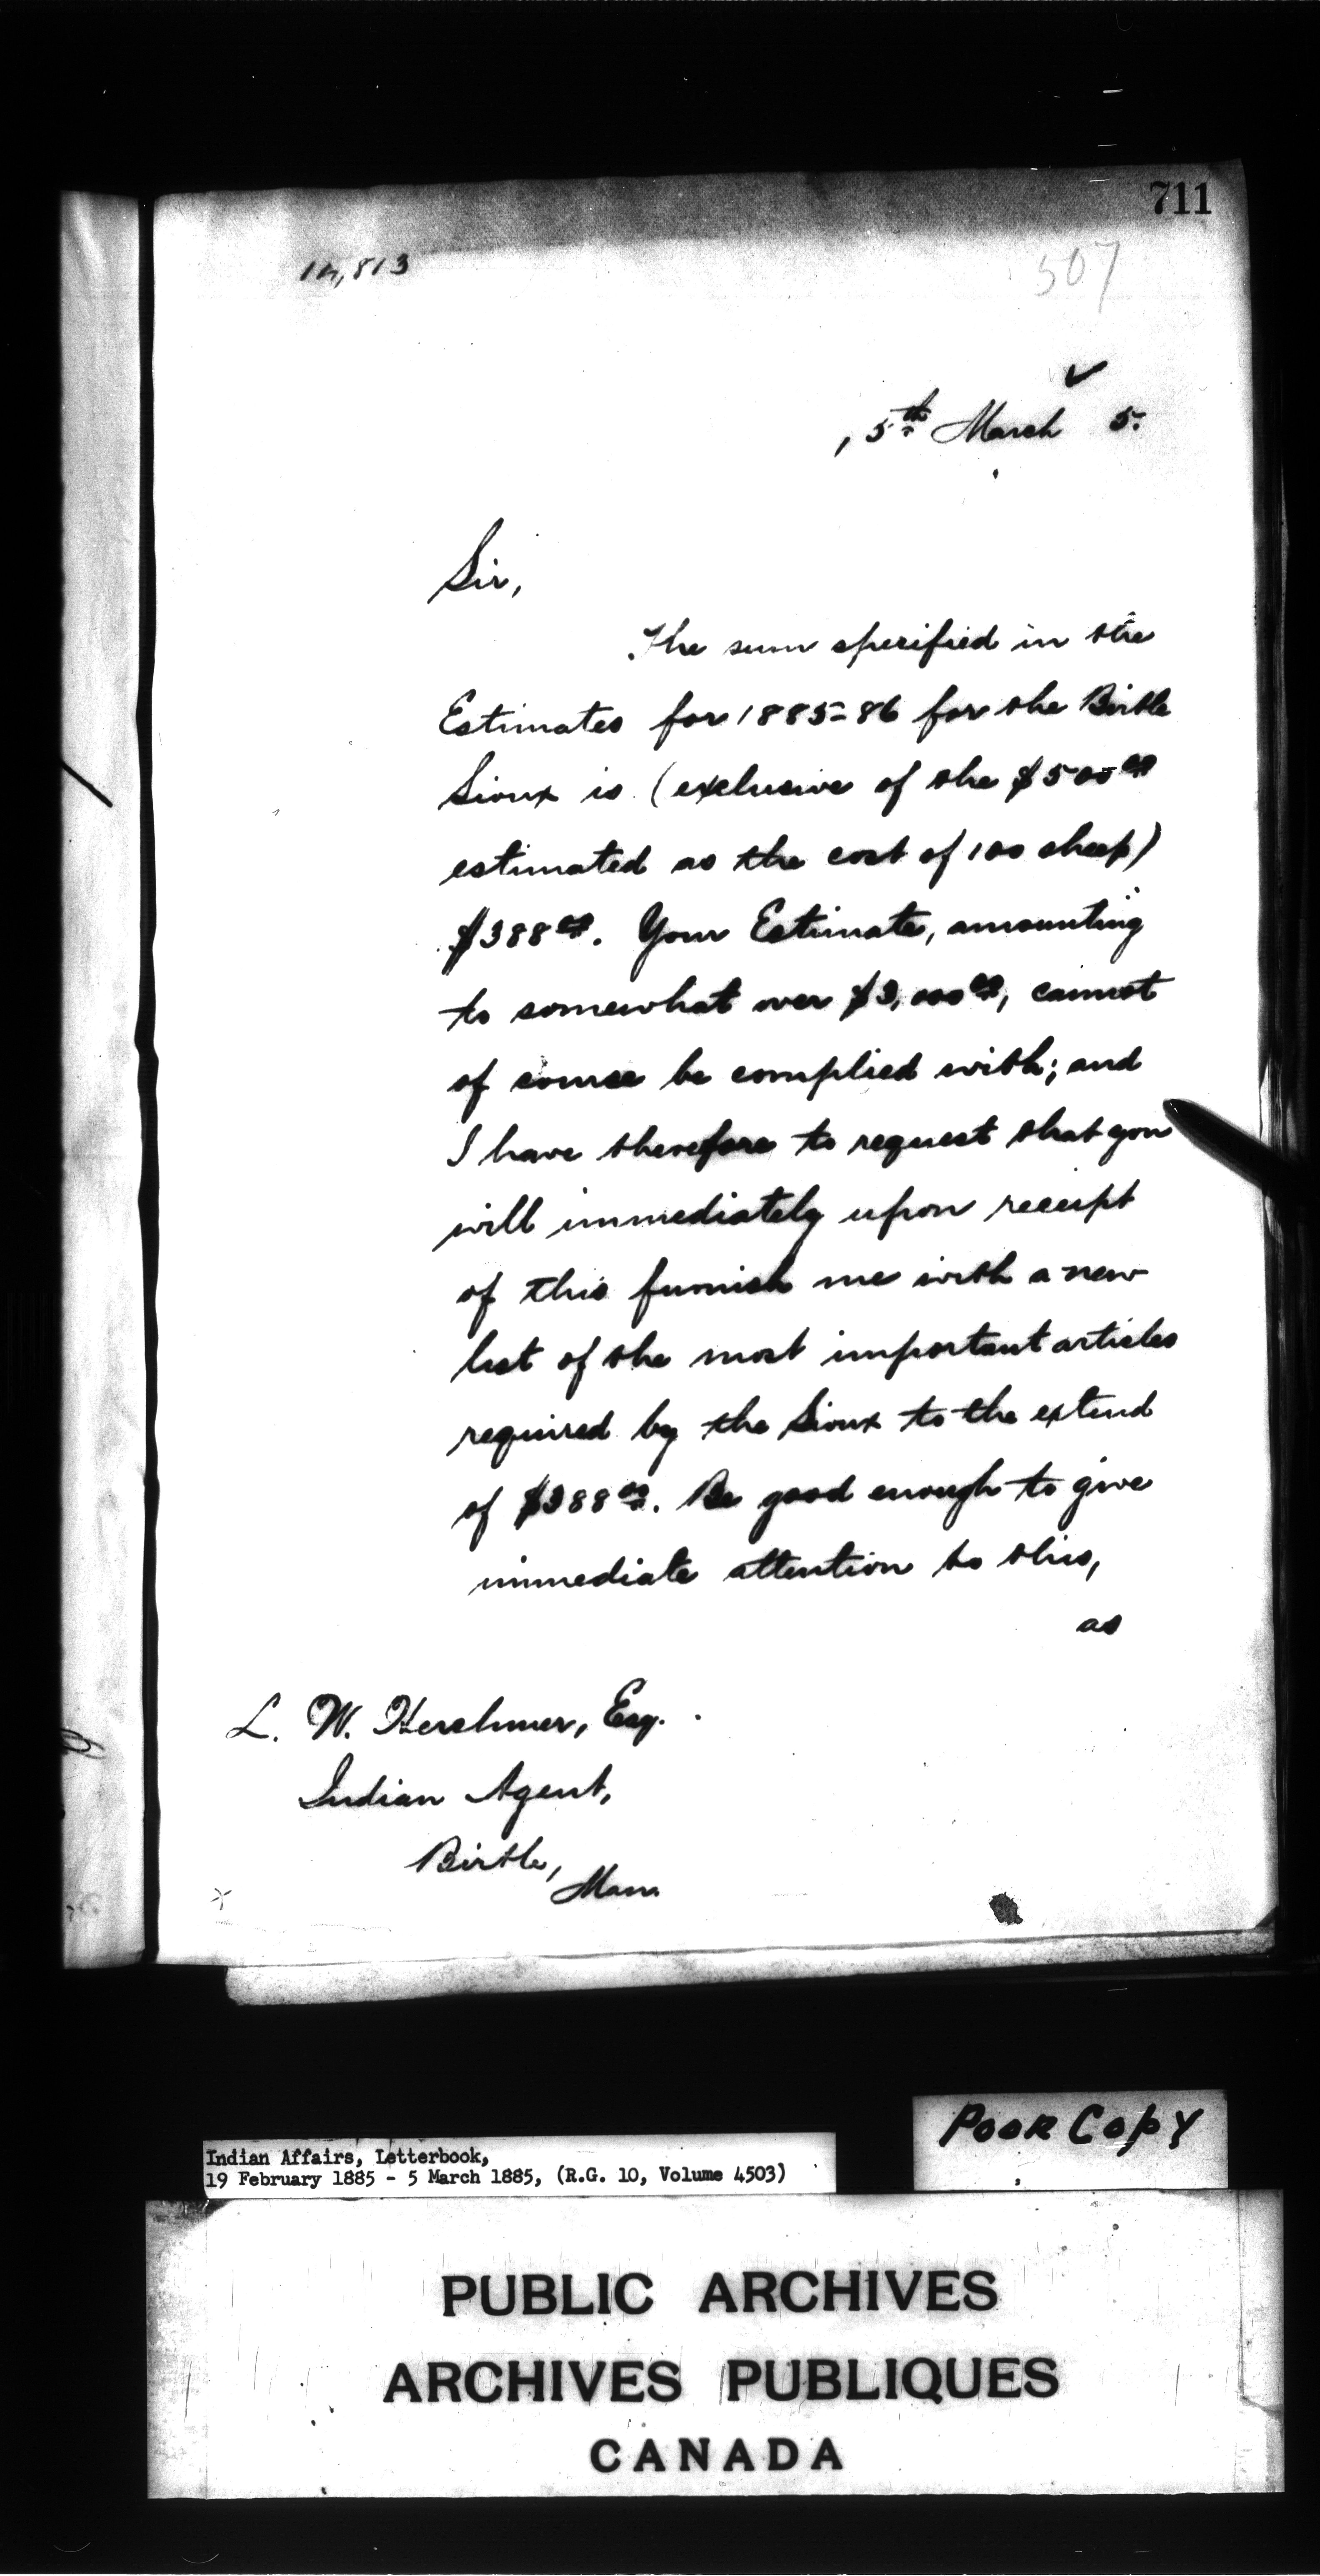 711
14,813
507
, 5th March 5.
Sir,
The sum specified in the
Estimates for 1885-86 for the Birtle
Sioux is (exclusive of the $500.00
estimated as the cost of 100 sheep)
$388.00. Your Estimate, amounting
to somewhat over $3,000.00, cannot
of course be complied with; and
I have therefore to request that you
will immediately upon receipt
of this furnish me with a new
list of the most important articles
required by the Sioux to the extend
of $388.00. Be good enough to give
immediate attention to this,
as
L. W. Herchmer, Esq.
Indian Agent,
Birtle,
Man.
Poor Copy
Indian Affairs, Letterbook,
19 February 1885 - 5 March 1885, (R.G. 10, Volume 4503)
PUBLIC ARCHIVES
ARCHIVES PUBLIQUES
CANADA